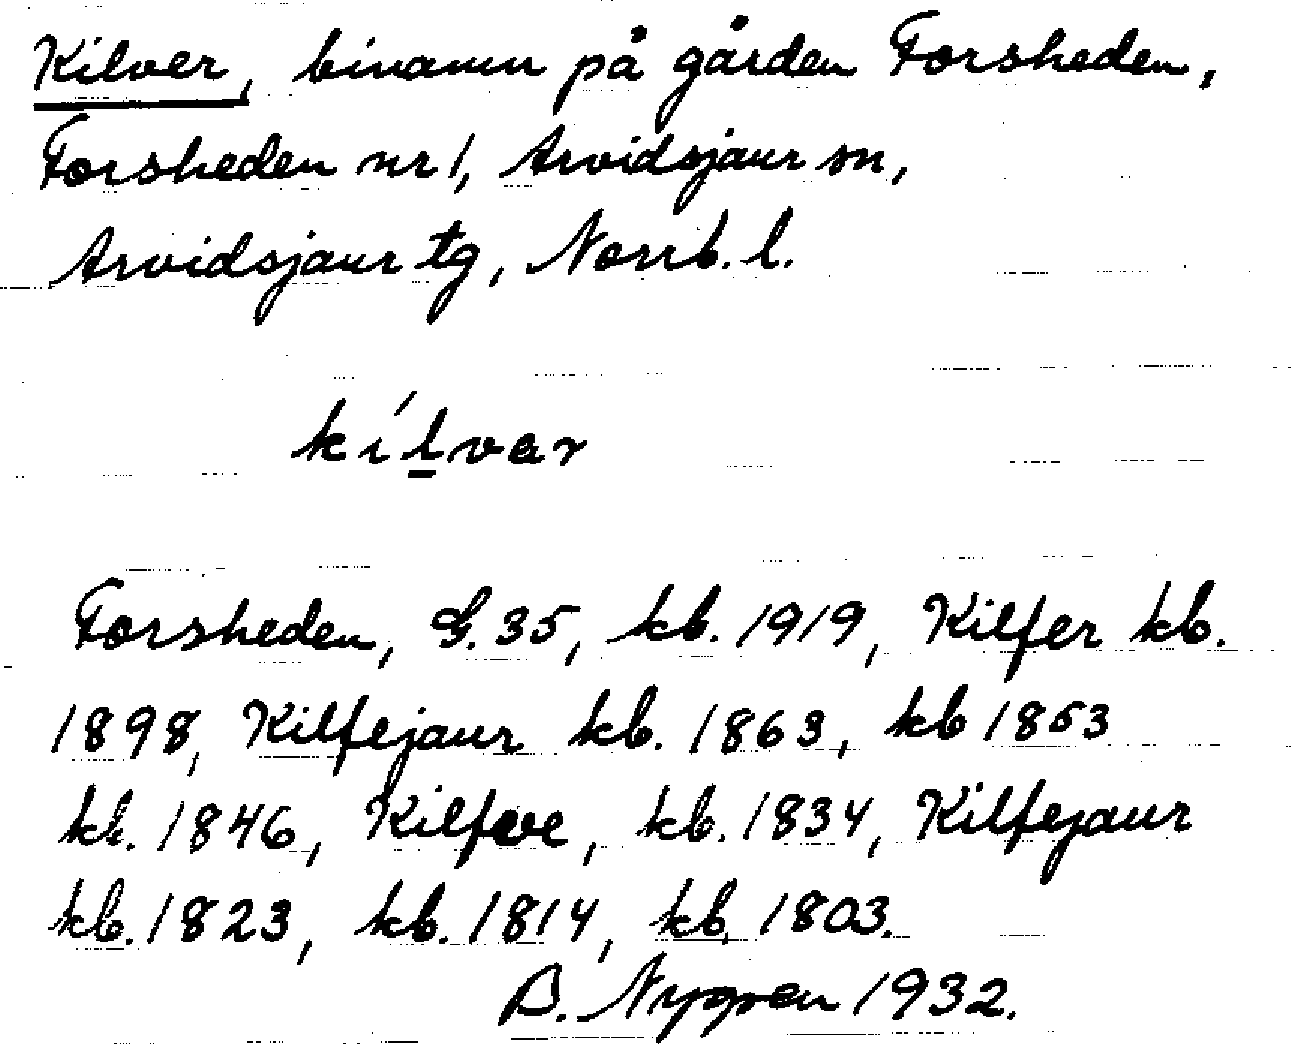 Kilver, binamn på gården Forsheden,
Forsheden nr 1, Arvidsjaur sn,
Arvidsjaur tg, Norrb. l.
kílvar
Forsheden, G. 35, kb. 1919, Kilfer kb.
1898, Kilfejaur kb. 1863, kb 1853
kb. 1846, Kilfve, kb. 1834, Kilfejaur
kb. 1823, kb. 1814, kb. 1803.
B. Nygren 1932.